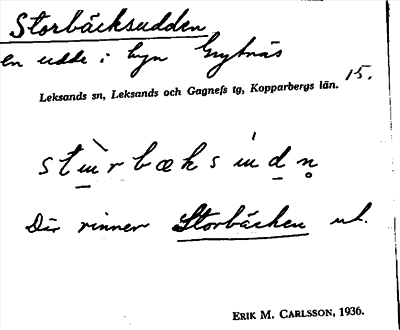 Storbäcksudden
en udde i byn Grytnäs
15.
Leksands sn, Leksands och Gagnefs tg, Kopparbergs län.
Där rinner Storbäcken ut.
ERIK M. CARLSSON, 1936.